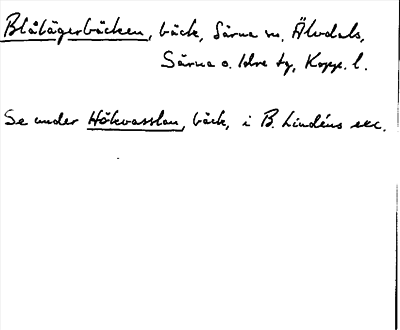 Blålägerbäcken, bäck, Särna sn. Älvdals,
Särna o. Idre tg, Kopp. l.
Se under Hökvasslan, bäck, i B. Lindéns exc.